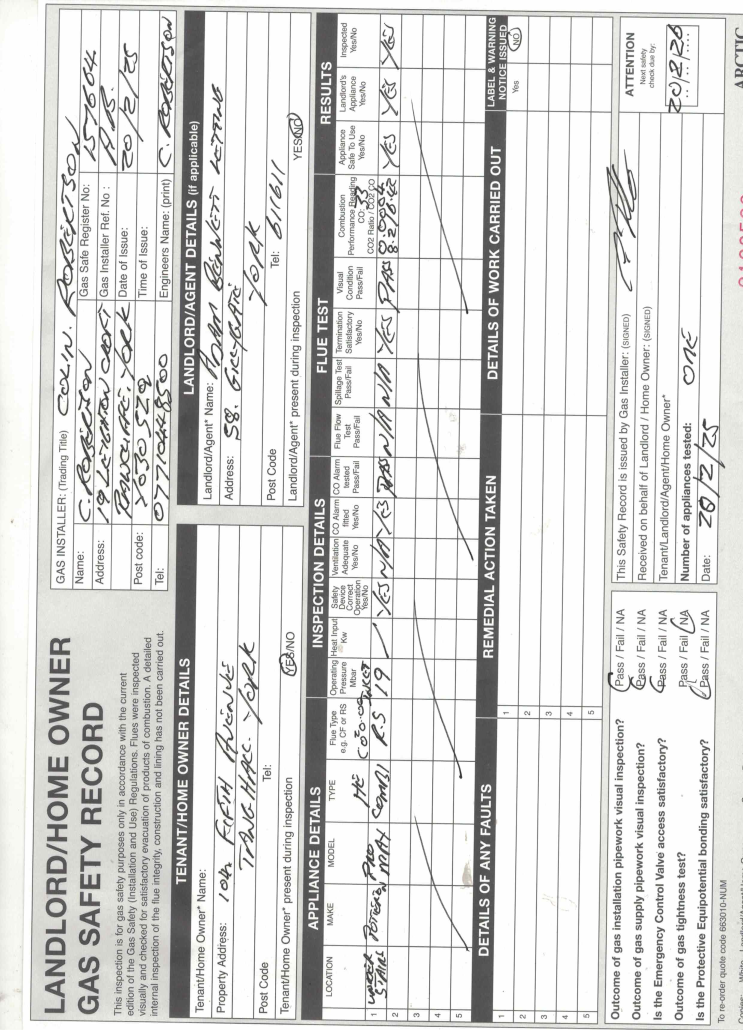 LANDLORD/HOME OWNER
GAS SAFETY RECORD
This inspection is for gas safety purposes only in accordance with the current
edition of the Gas Safety (Installation and Use) Regulations. Flues were inspected
visually and checked for satisfactory evacuation of products of combustion. A detailed
internal inspection of the flue integrity, construction and lining has not been carried out.
GAS INSTALLER: (Trading Title) COLIN. ROBERTSON
Name: C. ROBERTSON Gas Safe Register No: 157604
Address: 19 LEIGHTON CROFT Gas Installer Ref. No :
RAWCLIFFE. YORK Date of Issue: 20/2/25
Post code: YO30 5ZQ Time of Issue:
Tel: Engineers Name: (print) C. ROBERTSON
TENANT/HOME OWNER DETAILS
Tenant/Home Owner* Name:
Property Address: FIFTH AVENUE
TANG HALL YORK
Post Code Tel:
Tenant/Home Owner* present during inspection YES/NO
LANDLORD/AGENT DETAILS (if applicable)
Landlord/Agent* Name: ADAM BENNETT LETTING
Address: 58. GILLYGATE
YORK
Post Code Tel: 611611
Landlord/Agent* present during inspection YES/NO
APPLIANCE DETAILS INSPECTION DETAILS FLUE TEST RESULTS
LOCATION MAKE MODEL TYPE Flue Type e.g. CF or RS Operating Pressure Mbar Heat Input Kw Safety Device Correct Operation Yes/No Ventilation Adequate Yes/No CO Alarm fitted Yes/No CO Alarm tested Pass/Fail Flue Flow Test Pass/Fail Spillage Test Pass/Fail Termination Satisfactory Yes/No Visual Condition Pass/Fail Combustion Performance Reading CO: 33 CO2 Ratio / CO2 CO Appliance Safe To Use Yes/No Landlord's Appliance Yes/No Inspected Yes/No
1 UNDER STAIRS POTTERTON PRO MAX HE COMBI R.S 19 / YES N/A YES PASS N/A N/A YES PASS 0.0004 YES YES YES
2
3
4
5
DETAILS OF ANY FAULTS REMEDIAL ACTION TAKEN DETAILS OF WORK CARRIED OUT LABEL & WARNING NOTICE ISSUED
1 1 Yes NO
2 2
3 3
4 4
5 5
Outcome of gas installation pipework visual inspection? Pass / Fail / NA
Outcome of gas supply pipework visual inspection? Pass / Fail / NA
Is the Emergency Control Valve access satisfactory? Pass / Fail / NA
Outcome of gas tightness test? Pass / Fail / NA
Is the Protective Equipotential bonding satisfactory? Pass / Fail / NA
This Safety Record is issued by Gas Installer: (SIGNED)
Received on behalf of Landlord / Home Owner: (SIGNED)
Tenant/Landlord/Agent/Home Owner*
Number of appliances tested: ONE
Date: 20/2/25
ATTENTION
Next safety
check due by:
20/2/26
To re-order quote code 663010-NUM
ARCTIC